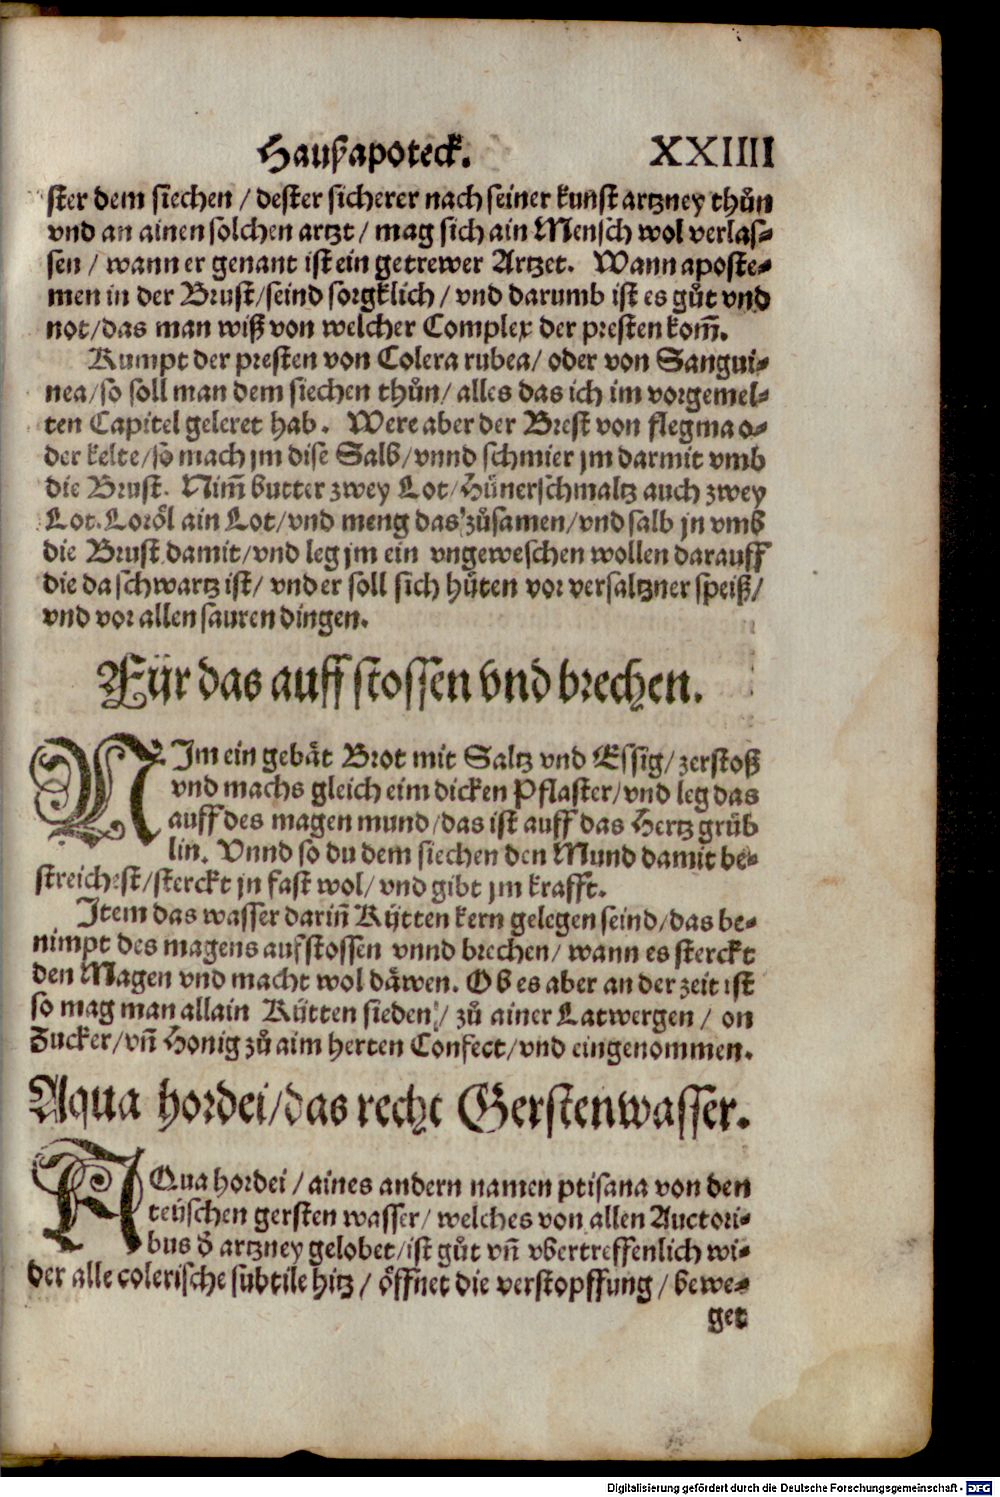 Haußapoteck. XXIIII
ster dem siechen / dester sicherer nach seiner kunst artzney thůn
vnd an ainen solchen artzt / mag sich ain Mensch wol verlas-
sen / wann er genant ist ein getrewer Artzet. Wann aposte-
men in der Brust / seind sorgklich / vnd darumb ist es gůt vnd
not / das man wiß von welcher Complex der presten kom̃.
Kumpt der presten von Colera rubea / oder von Sangui-
nea / so soll man dem siechen thůn / alles das ich im vorgemel-
ten Capitel geleret hab. Were aber der Brest von flegma o-
der kelte / so mach jm dise Salb / vnnd schmier jm darmit vmb
die Brust. Nim̃ butter zwey Lot / Hünerschmaltz auch zwey
Lot. Loröl ain Lot / vnd meng das zůsamen / vnd salb jn vmb
die Brust damit / vnd leg jm ein vngeweschen wollen darauff
die da schwartz ist / vnd er soll sich hüten vor versaltzner speiß /
vnd vor allen sauren dingen.
Für das auff stossen vnd brechen.
NIm ein gebät Brot mit Saltz vnd Essig / zerstoß
vnd machs gleich eim dicken Pflaster / vnd leg das
auff des magen mund / das ist auff das Hertz grüb
lin. Vnnd so du dem siechen den Mund damit be-
streichest / sterckt jn fast wol / vnd gibt jm krafft.
Item das wasser darin̄ Kütten kern gelegen seind / das be-
nimpt des magens aufstossen vnnd brechen / wann es sterckt
den Magen vnd macht wol däwen. Ob es aber an der zeit ist
so mag man allain Kütten sieden / zů ainer Latwergen / on
Zucker / vn̄ Honig zů aim herten Confect / vnd eingenommen.
Aqua hordei / das recht Gerstenwasser.
AQua hordei / aines andern namen ptisana von den
teüschen gersten wasser / welches von allen Auctori-
bus d̕ artzney gelobet / ist gůt vn̄ vbertreffenlich wi-
der alle colerische subtile hitz / öffnet die verstopffung / bewe-
get
Digitalisierung gefördert durch die Deutsche Forschungsgemeinschaft - DFG